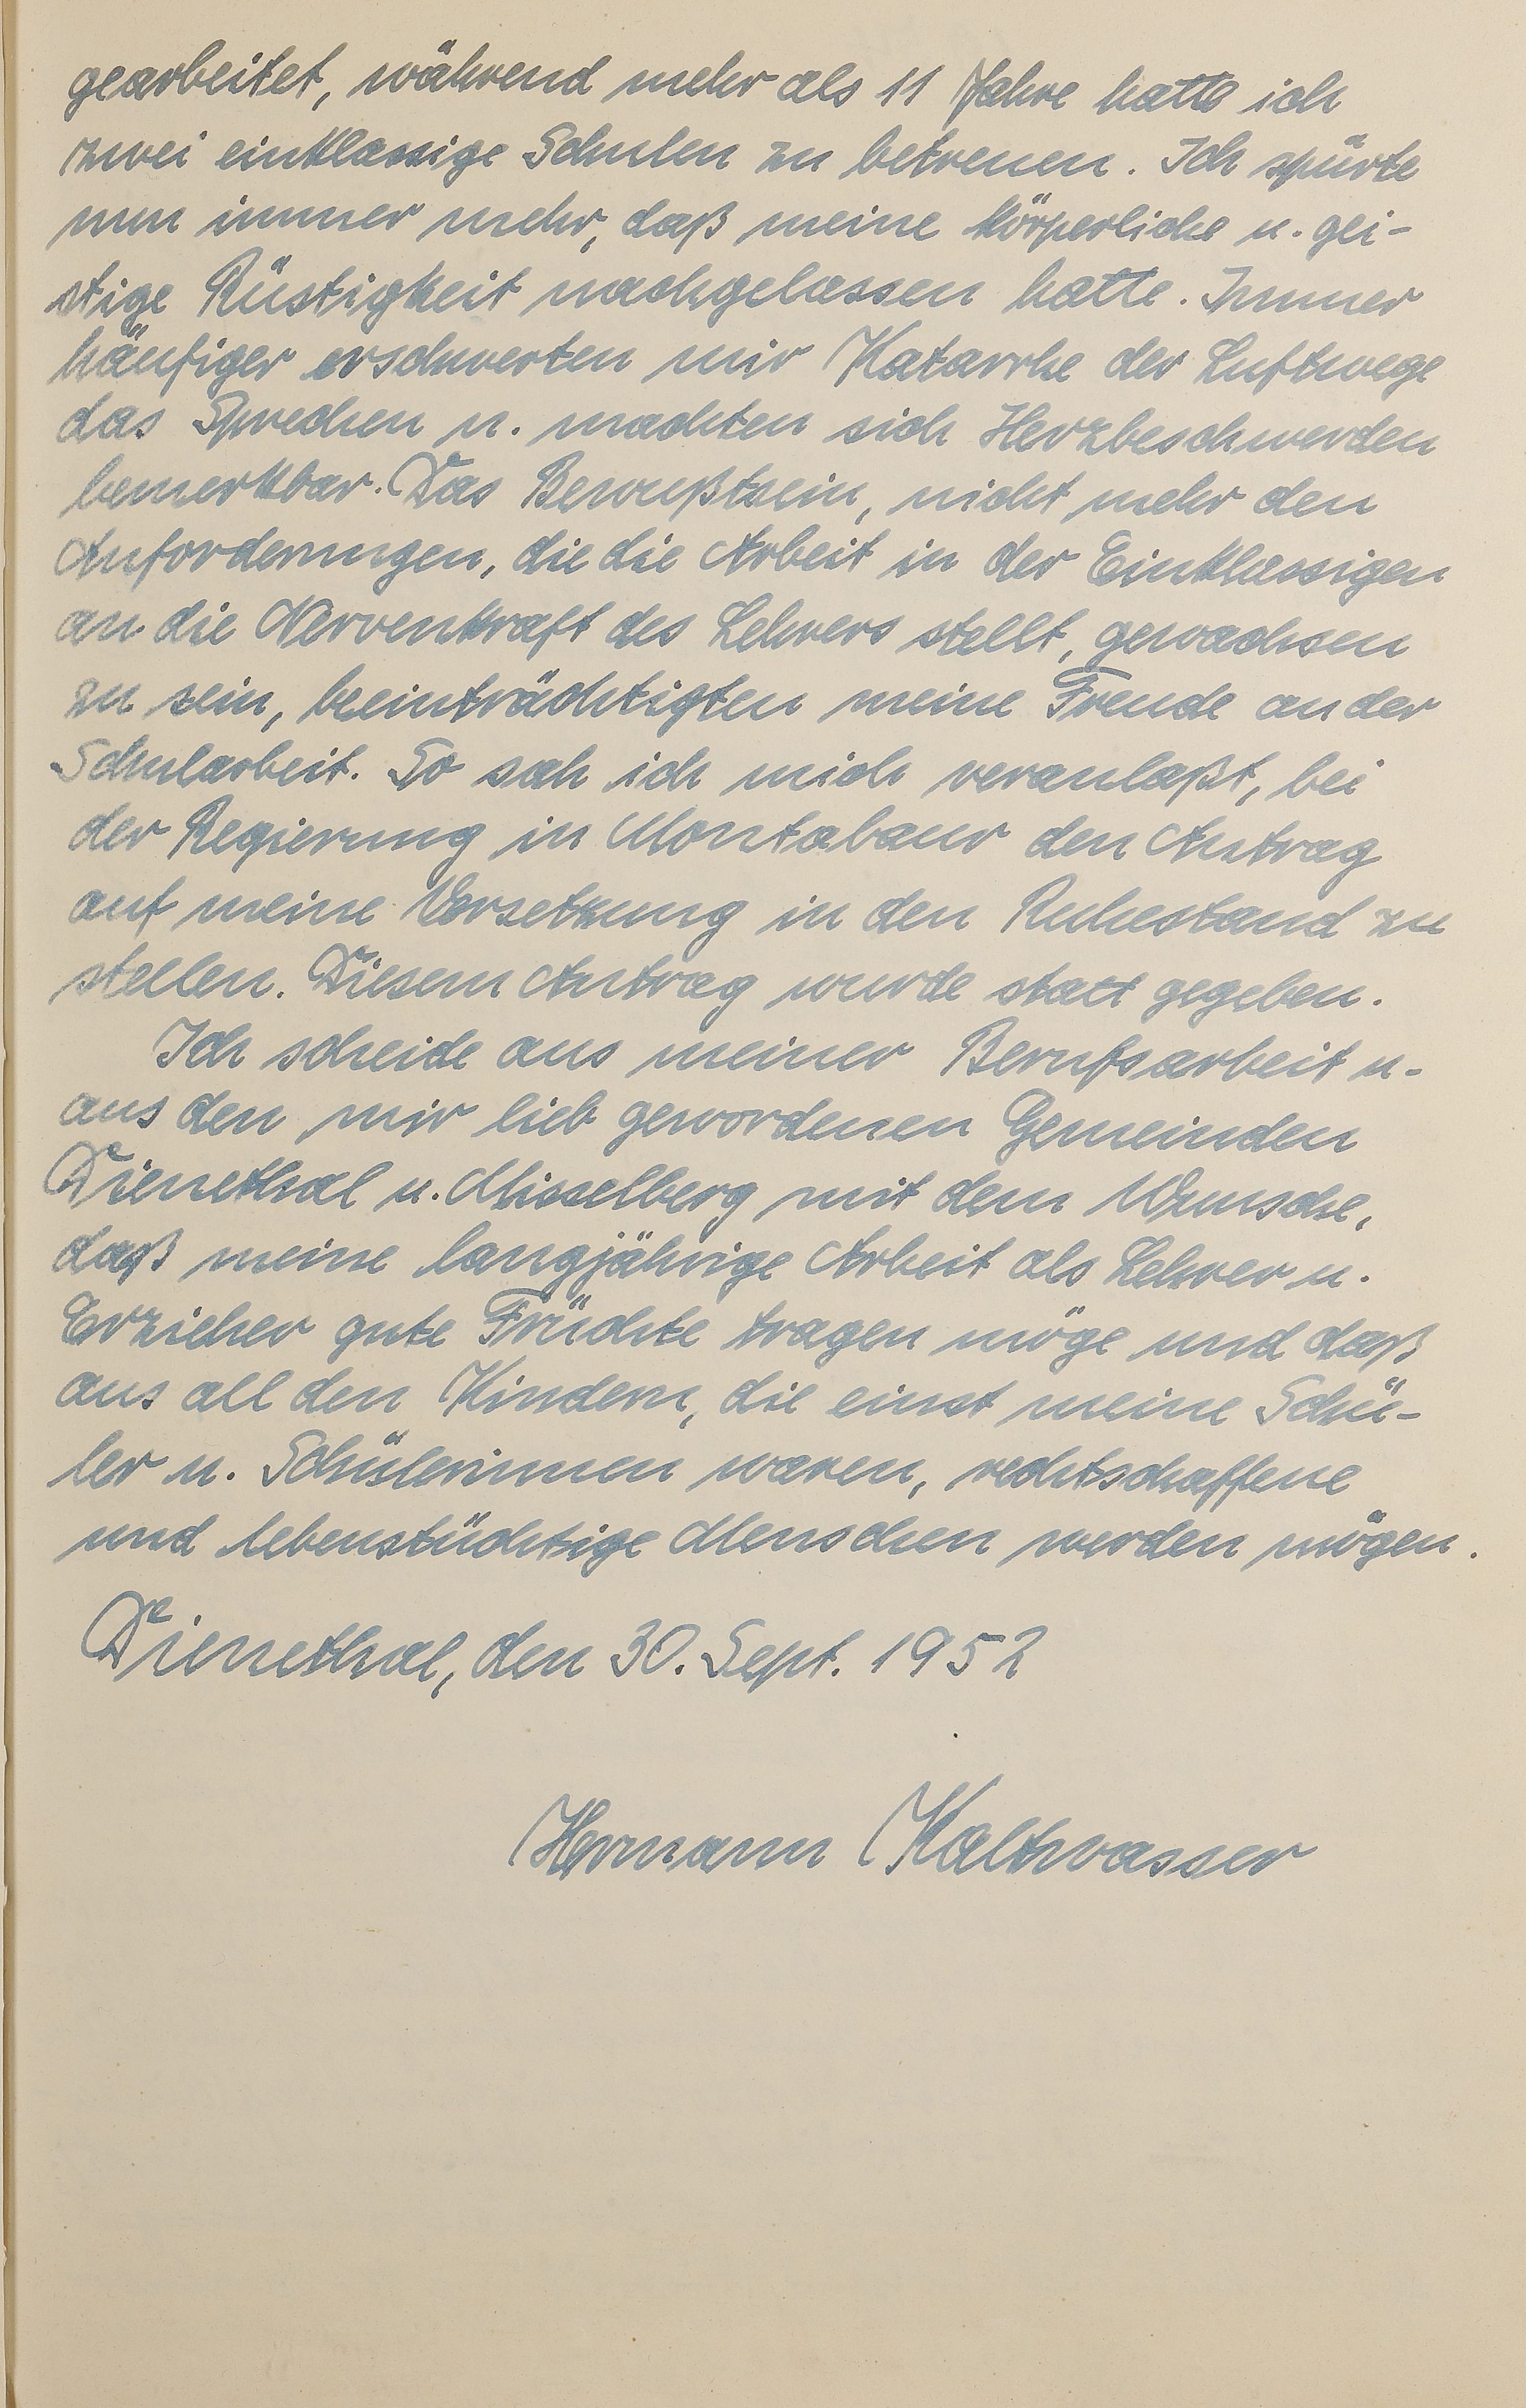 gearbeitet, während mehr als 11 Jahre hatte ich
zwei einklassige Schulen zu betreuen. Ich spürte
nun immer mehr, daß meine körperliche u. gei-
stige Rüstigkeit nachgelassen hatte. Immer
häufiger erschwerten mir Katarrhe der Luftwege
das Sprechen u. machten sich Herzbeschwerden
bemerkbar. Das Bewußtsein, nicht mehr den
Anforderungen, die die Arbeit in der Einklassigen
an die Nervenkraft des Lehrers stellt, gewachsen
zu sein, beeinträchtigten meine Freude an der
Schularbeit. So sah ich mich veranlaßt, bei
der Regierung in Montabaur den Antrag
auf meine Versetzung in den Ruhestand zu
stellen. Diesem Antrag wurde statt gegeben.
Ich scheide aus meiner Berufsarbeit u.
aus den mir lieb gewordenen Gemeinden
Dienethal u. Misselberg mit dem Wunsche,
daß meine langjährige Arbeit als Lehrer u.
Erzieher gute Früchte tragen möge und daß
aus all den Kindern, die einst meine Schü-
ler u. Schülerinnen waren, rechtschaffene
und lebenstüchtige Menschen werden mögen.
Dienethal, den 30. Sept. 1952
Hermann Kaltwasser